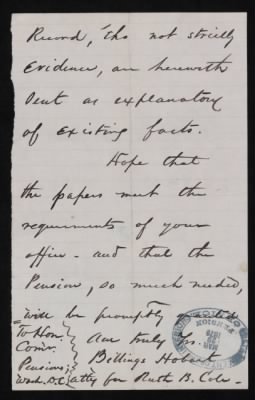 Record, tho not strictly
Evidence, are herewith
sent as explanatory
of existing facts.
Hope that
the papers meet the
requirements of your
office - and that the
Pension, so much needed,
will be promptly granted
To Hon.
Comr.
Pensions;
Wash. D.C.
truly Yrs.
Billings Hobart
atty for Ruth B. Cole -
PENSION
MAR